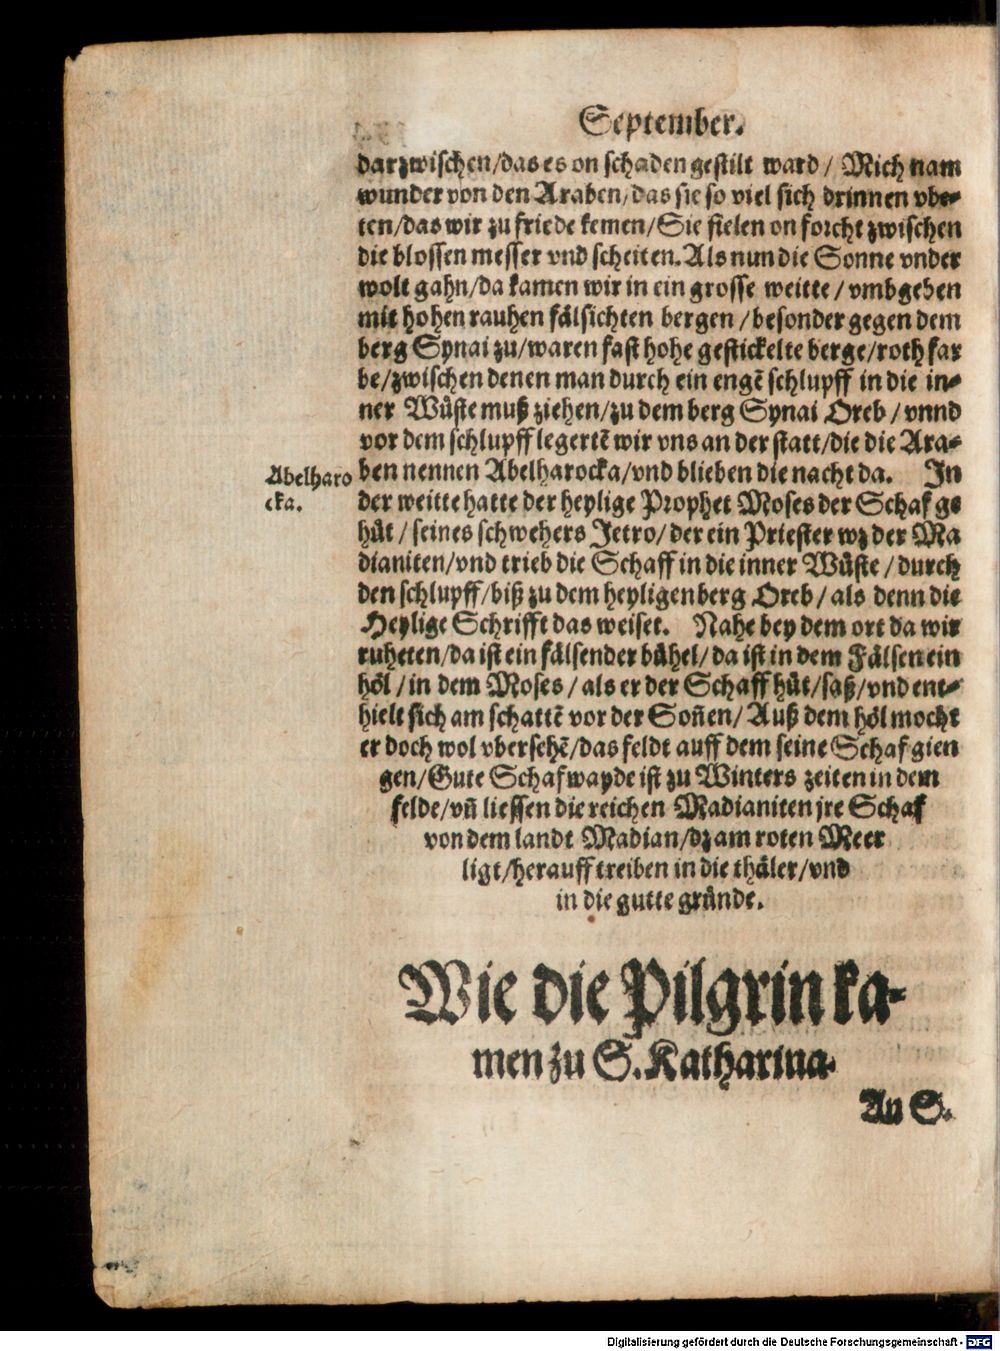 September.
darzwischen/das es on schaden gestilt ward/ Mich nam
wunder von den Araben/das sie so viel sich drinnen vbe-
ten/das wir zu friede kemen/Sie fielen on forcht zwischen
die blossen messer vnd scheiten. Als nun die Sonne vnder
wolt gahn/da kamen wir in ein grosse weitte/vmbgeben
mit hohen rauhen fälsichten bergen/besonder gegen dem
berg Synai zu/waren fast hohe gestickelte berge/roth far
be/zwischen denen man durch ein engē schlupff in die in-
ner Wüste muß ziehen/zu dem berg Synai Oreb/vnnd
vor dem schlupff legertē wir vns an der statt/die die Ara-
ben nennen Abelharocka/vnd blieben die nacht da. In
Abelharo
cka.
der weitte hatte der heylige Prophet Moses der Schaf ge
hüt/seines schwehers Jetro/der ein Priester wz der Ma
dianiten/vnd trieb die Schaff in die inner Wüste/durch
den schlupff/biß zu dem heyligen berg Oreb/als denn die
Heylige Schrifft das weiset. Nahe bey dem ort da wir
ruheten/da ist ein fälsender bühel/da ist in dem Fälsen ein
höl/in dem Moses/als er der Schaff hüt/saß/vnd ent-
hielt sich am schattē vor der Soñen/Auß dem höl mocht
er doch wol vbersehē/das feldt auff dem seine Schaf gien
gen/Gute Schafwayde ist zu Winters zeiten in dem
felde/vñ liessen die reichen Madianiten jre Schaf
von dem landt Madian/dz am roten Meer
ligt/herauff treiben in die thäler/vnd
in die gutte gründe.
Wie die Pilgrin ka-
men zu S. Katharina.
An S.
Digitalisierung gefördert durch die Deutsche Forschungsgemeinschaft - DFG